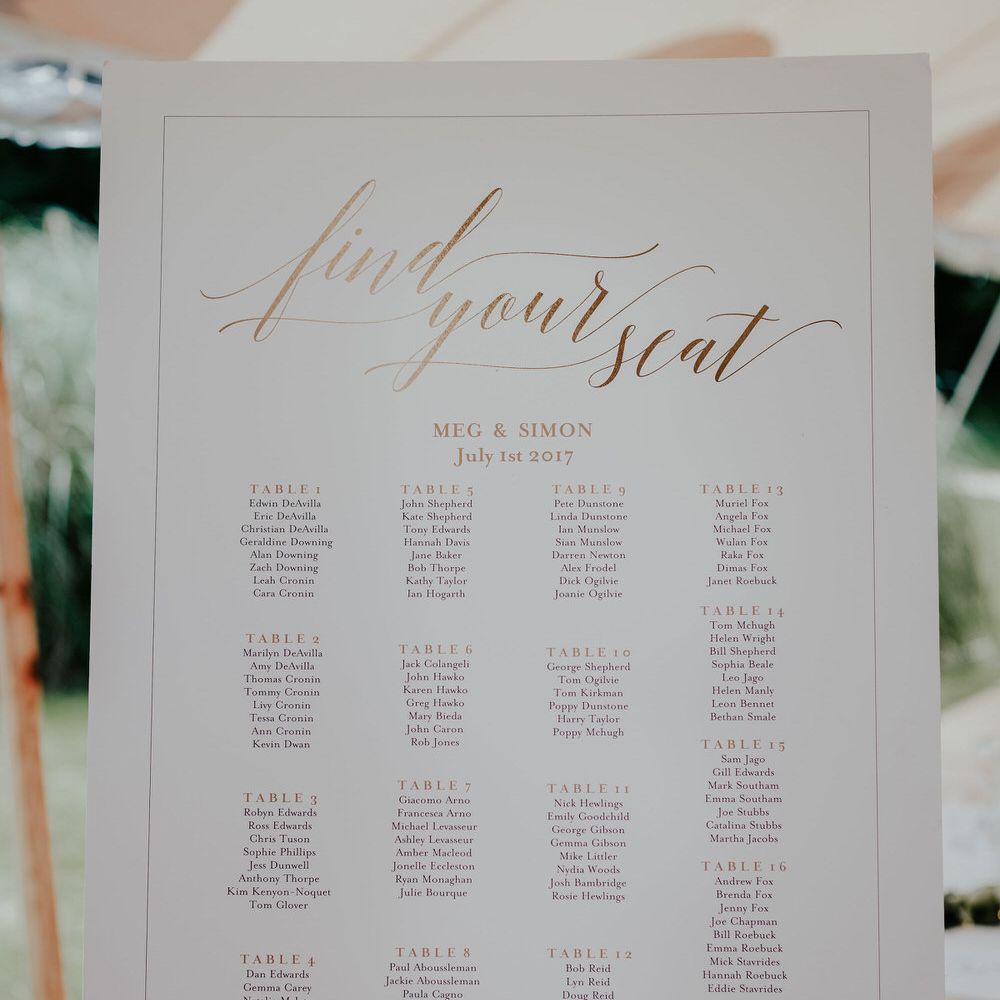 find
your
seat
MEG & SIMON
July 1st 2017
TABLE 1
Edwin DeAvilla
Eric DeAvilla
Christian DeAvilla
Geraldine Downing
Alan Downing
Zach Downing
Leah Cronin
Cara Cronin
TABLE 2
Marilyn DeAvilla
Amy DeAvilla
Thomas Cronin
Tommy Cronin
Livy Cronin
Tessa Cronin
Ann Cronin
Kevin Dwan
TABLE 3
Robyn Edwards
Ross Edwards
Chris Tuson
Sophie Phillips
Jess Dunwell
Anthony Thorpe
Kim Kenyon-Noquet
Tom Glover
TABLE 4
Dan Edwards
Gemma Carey
TABLE 5
John Shepherd
Kate Shepherd
Tony Edwards
Hannah Davis
Jane Baker
Bob Thorpe
Kathy Taylor
Ian Hogarth
TABLE 6
Jack Colangeli
John Hawko
Karen Hawko
Greg Hawko
Mary Bieda
John Caron
Rob Jones
TABLE 7
Giacomo Arno
Francesca Arno
Michael Levasseur
Ashley Levasseur
Amber Macleod
Jonelle Eccleston
Ryan Monaghan
Julie Bourque
TABLE 8
Paul Aboussleman
Jackie Aboussleman
Paula Cagno
TABLE 9
Pete Dunstone
Linda Dunstone
Ian Munslow
Sian Munslow
Darren Newton
Alex Frodel
Dick Ogilvie
Joanie Ogilvie
TABLE 10
George Shepherd
Tom Ogilvie
Tom Kirkman
Poppy Dunstone
Harry Taylor
Poppy Mchugh
TABLE 11
Nick Hewlings
Emily Goodchild
George Gibson
Gemma Gibson
Mike Littler
Nydia Woods
Josh Bambridge
Rosie Hewlings
TABLE 12
Bob Reid
Lyn Reid
Doug Reid
TABLE 13
Muriel Fox
Angela Fox
Michael Fox
Wulan Fox
Raka Fox
Dimas Fox
Janet Roebuck
TABLE 14
Tom Mchugh
Helen Wright
Bill Shepherd
Sophia Beale
Leo Jago
Helen Manly
Leon Bennet
Bethan Smale
TABLE 15
Sam Jago
Gill Edwards
Mark Southam
Emma Southam
Joe Stubbs
Catalina Stubbs
Martha Jacobs
TABLE 16
Andrew Fox
Brenda Fox
Jenny Fox
Joe Chapman
Bill Roebuck
Emma Roebuck
Mick Stavrides
Hannah Roebuck
Eddie Stavrides